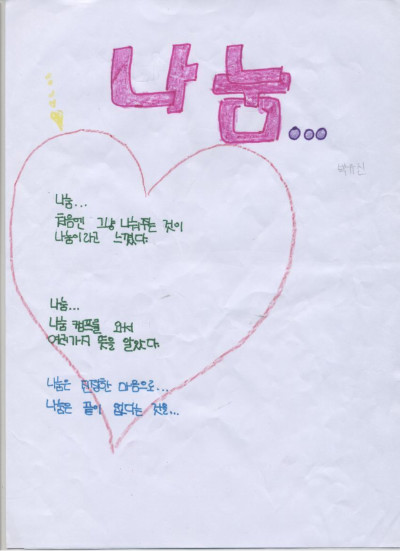 나눔...
박유진
나눔...
처음엔 그냥 나눠주는 것이
나눔이라고 느꼈다.
나눔...
나눔 캠프를 와서
여러가지 뜻을 알았다.
나눔은 진정한 마음으로...
나눔은 끝이 없다는 것을...